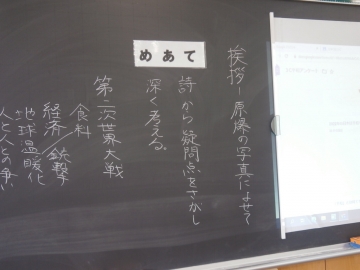 挨拶ー原爆の写真によせて
めあて
詩から疑問点をさがし
深く考える。
第二次世界大戦
食料
経済/銃撃
地球温暖化
人と人との争い